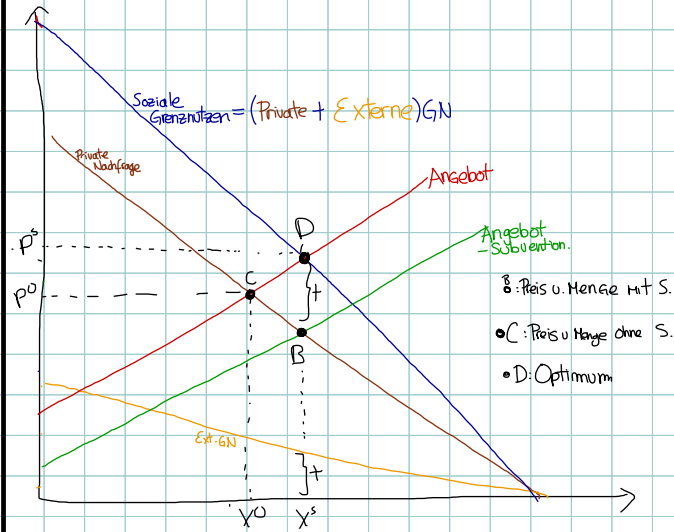 Soziale
Grenznutzen = (Private + Externe)GN
Private
Nachfrage
Angebot
Angebot
- Subvention.
D
pˢ
C
p⁰
t
B
B: Preis u. Menge mit S.
C: Preis u Menge ohne S.
D: Optimum
Ext. GN
t
X⁰
Xˢ